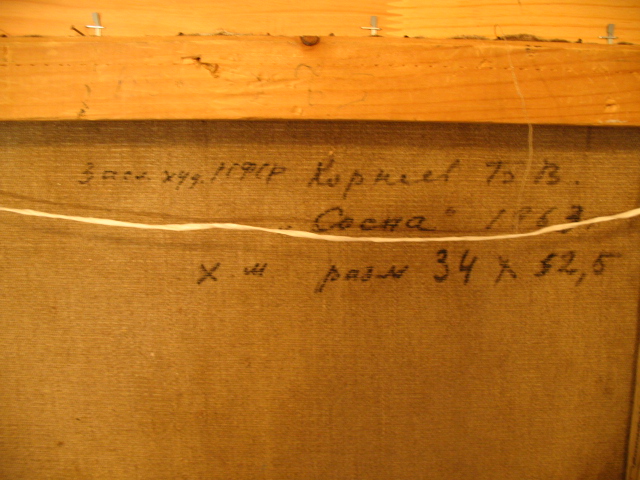 Засл. худ. РСФСР Корнеев Б. В.
„Сосна" 1963.
х. м разм 34 х 52,5